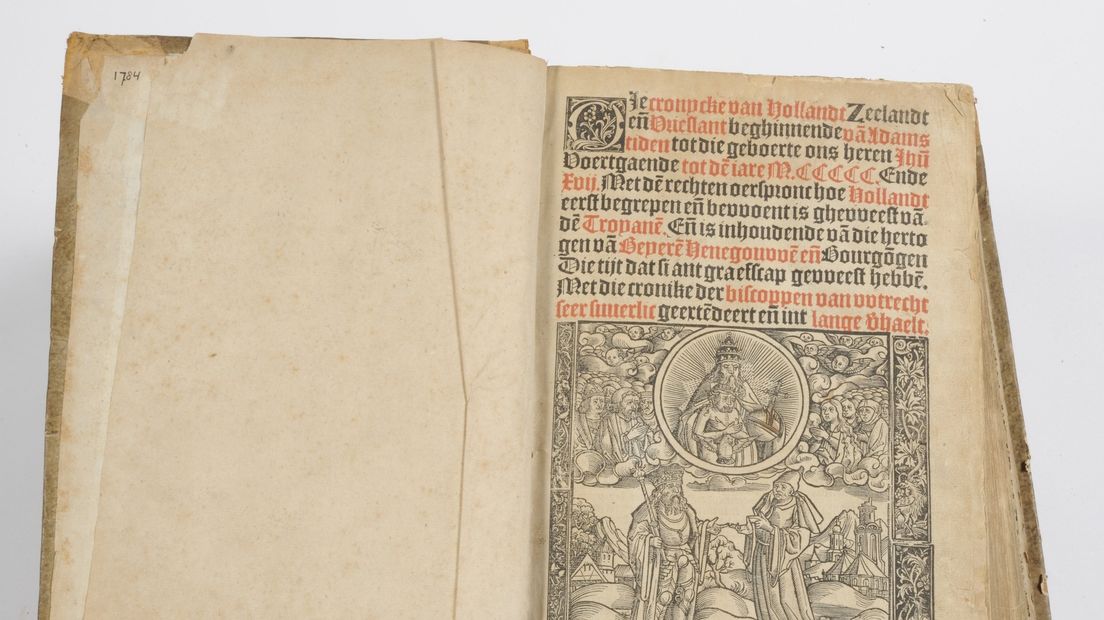 1784
Die cronycke van Hollandt Zeelandt
eñ Vrieslant beghinnende vā Adams
tiden tot die geboerte ons heren Jhū
Voertgaende tot dē iare M.CCCCC. Ende
Xvij. Met dē rechten oerspronc hoe Hollandt
eerst begrepen eñ bevvoent is ghevveest vā
dē Troyanē. Eñ is inhoudende vā die herto
gen vā Beyerē Henegouvvē eñ Bourgōgen
Die tijt dat si ant graefscap gevveest hebbē.
Met die cronike der biscoppen van vvtrecht
seer suuerlic geextēdeert eñ int lange v̄haelt.